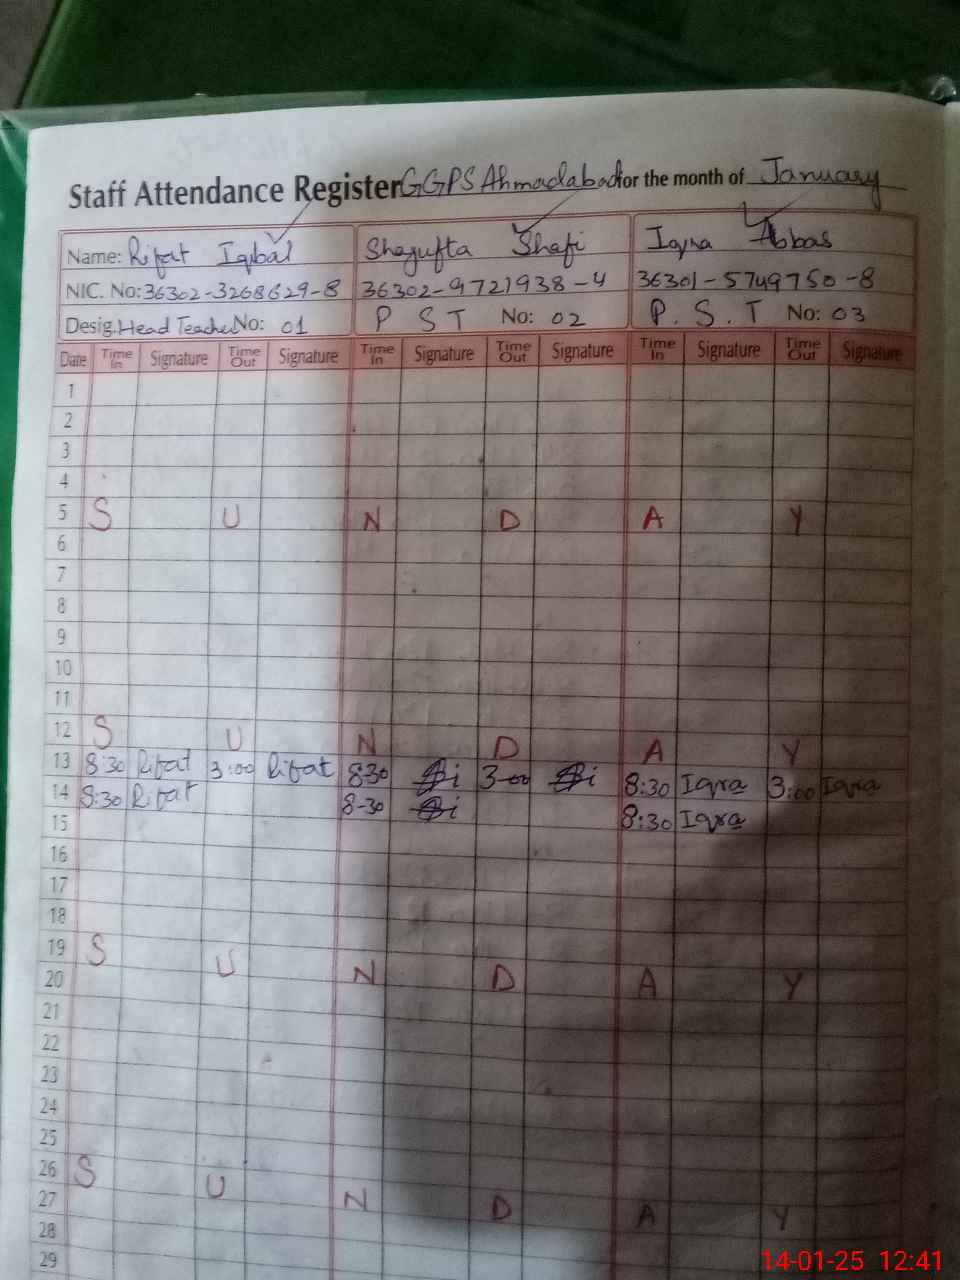 Staff Attendance Register GGPS Ahmadabad for the month of January
Name: Rifat Iqbal Shagufta Shafi Iqra Abbas
NIC. No: 36302-3268629-8 36302-9721938-4 36301-5749750-8
Desig. Head Teacher No: 01 P S T No: 02 P. S. T No: 03
Date Time In Signature Time Out Signature Time In Signature Time Out Signature Time In Signature Time Out Signature
1
2
3
4
5 S U N D A Y
6
7
8
9
10
11
12 S U N D A Y
13 8:30 Rifat 3:00 Rifat 8-30 3-00 8:30 Iqra 3:00 Iqra
14 8:30 Rifat 8-30 8:30 Iqra
15
16
17
18
19 S U N D A Y
20
21
22
23
24
25
26 S U N D A Y
27
28
29
14-01-25 12:41